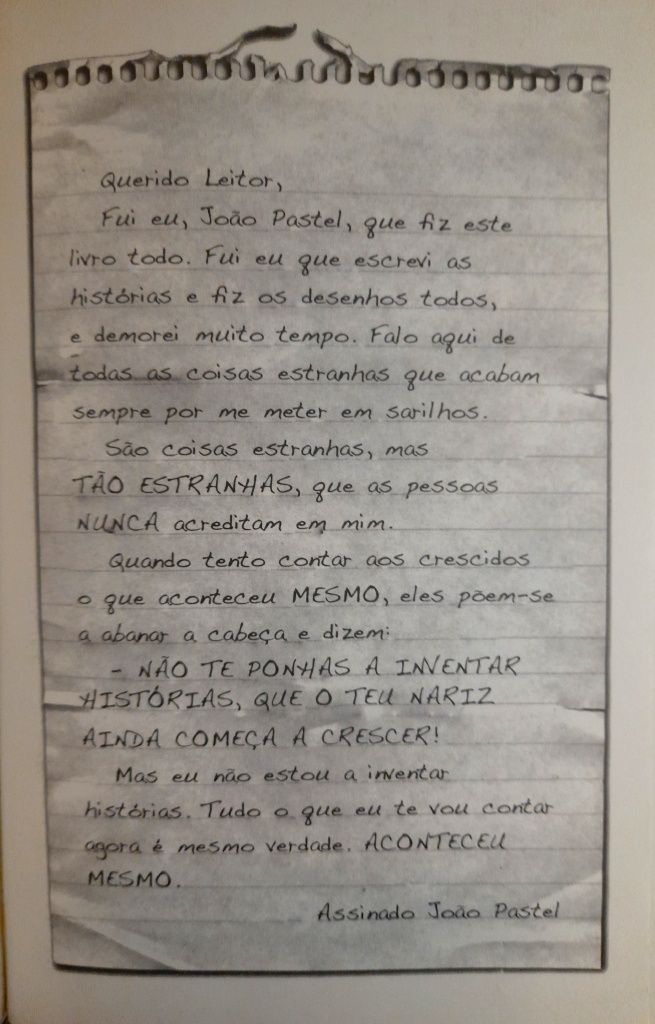 Querido Leitor,
Fui eu, João Pastel, que fiz este
livro todo. Fui eu que escrevi as
histórias e fiz os desenhos todos,
e demorei muito tempo. Falo aqui de
todas as coisas estranhas que acabam
sempre por me meter em sarilhos.
São coisas estranhas, mas
TÃO ESTRANHAS, que as pessoas
NUNCA acreditam em mim.
Quando tento contar aos crescidos
o que aconteceu MESMO, eles põem-se
a abanar a cabeça e dizem:
- NÃO TE PONHAS A INVENTAR
HISTÓRIAS, QUE O TEU NARIZ
AINDA COMEÇA A CRESCER!
Mas eu não estou a inventar
histórias. Tudo o que eu te vou contar
agora é mesmo verdade. ACONTECEU
MESMO.
Assinado João Pastel